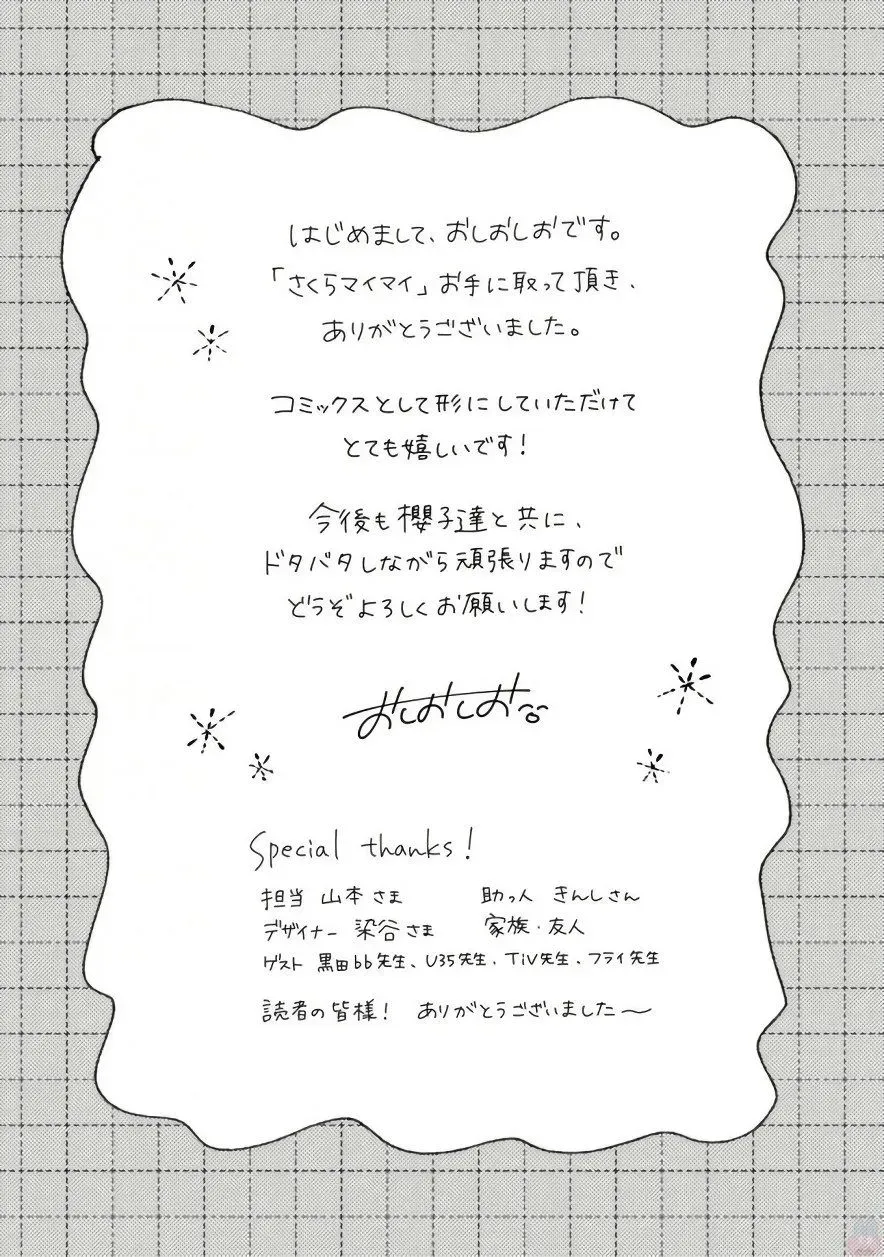 はじめまして、おしおしおです。
「さくらマイマイ」お手に取って頂き、
ありがとうございました。
コミックスとして形にしていただけて
とても嬉しいです!
今後も櫻子達と共に、
ドタバタしながら頑張りますので
どうぞよろしくお願いします!
おしおしお
Special thanks!
担当 山本さま 助っ人 きんしさん
デザイナー 染谷さま 家族・友人
ゲスト 黒田bb先生、U35先生、TiV先生、フライ先生
読者の皆様! ありがとうございました〜